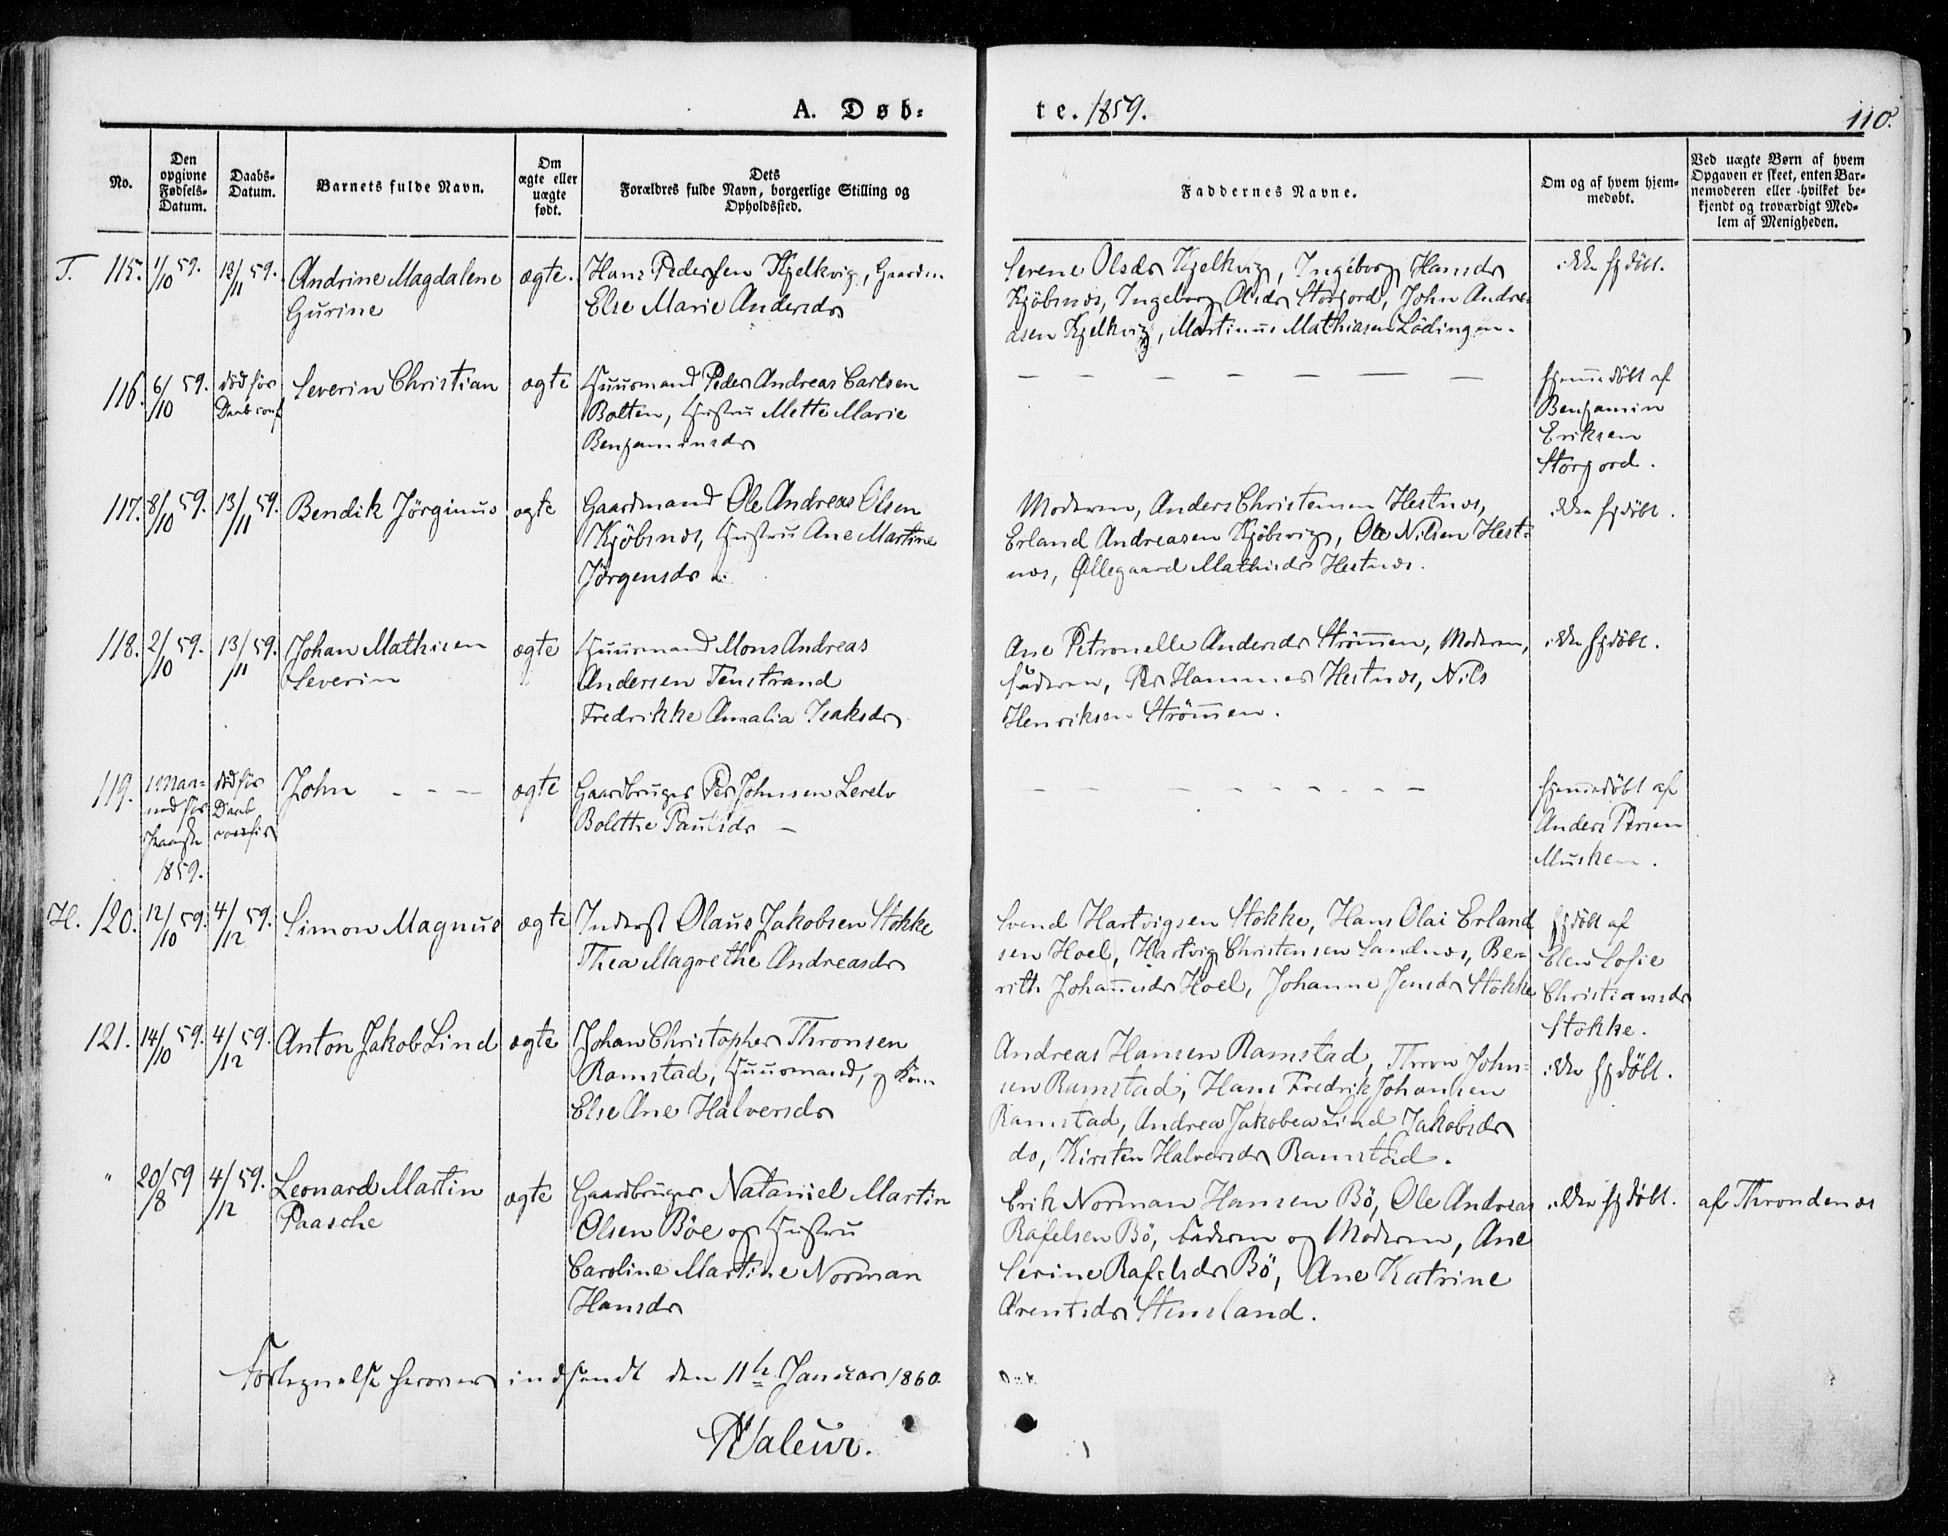 A. Døb-
te. 1859.
110.
No.
Den opgivne Fødsels-Datum.
Daabs-Datum.
Barnets fulde Navn.
Om ægte eller uægte født.
Dets Forældres fulde Navn, borgerlige Stilling og Opholdssted.
Faddernes Navne.
Om og af hvem hjem-medøbt.
Ved uægte Børn af hvem
Opgaven er skeet, enten Bar-
nemoderen eller hvilket be-
kjendt og troværdigt Med-
lem af Menigheden.
T. 115. 1/10 59. 13/11 59. Andrine Magdalene
Gurine
ægte.
Hans Pedersen Kjelkvig, Gaardm.
Else Marie Andersdr
Serene Olsdr Kjelkvig, Ingeborg Hansdr
Kjöbsnæs, Ingeborg Olsdr Storjord, John Andre-
asen Kjelkvig, Martinus Mathiasen Lödingen.
ikke hjdöbt.
116. 6/10 59. död för
Daab conf
Severin Christian
ægte
Huusmand Peder Andreas Carlsen
Bolten, Hustru Mette Marie
Benjaminsdr
— — — — — — —
hjemmedöbt af
Benjamin
Eriksen
Storjord.
117. 8/10 59. 13/11 59. Bendik Jörginus
ægte
Gaardmand Ole Andreas Olsen
Kjöbsnæs, Hustru Ane Martine
Jörgensdr
Moderen, Anders Christensen Hestnæs,
Erland Andreasen Kjöbsvig, Ole Nilsen Hest-
næs, Ollegaard Mathisdr Hestnæs.
ikke hjdöbt.
118. 2/10 59. 13/11 59. Johan Mathisen
Severin
ægte
Huusmand Mons Andreas
Andersen Tenstrand
Fredrikke Amalia Isaksdr
Ane Petronelle Andersdr Strömmen, Moderen,
Faderen, Per Hammer Hestnæs, Nils
Henriksen Strömmen.
ikke hjdöbt.
119. 1 Maa-
ned för
1859.
död för
Daab
John - - —
ægte
Gaardbruger Per Johnsen Lerelv
Bolethe Paulsdr —
— — — — — — — —
hjemmedöbt af
Anders Persen
Musken.
H. 120. 12/10 59. 4/12 59. Simon Magnus
ægte
Inderst Olaus Jakobsen Stokke
Thea Magrethe Andreasdr
Svend Hartvigsen Stokke, Hans Olai Erland
sen Hoel, Hartvig Christensen Sandnæs, Be-
rith Johannsdr Hoel, Johanne Jensdr Stokke
hjdöbt af
Elen Sofie
Christiansdr
Stokke.
121. 14/10 59. 4/12 59. Anton Jakob Lind
ægte
Johan Christopher Thronsen
Ramstad, Huusmand, og Kone
Else Ane Halversdr
Andreas Hansen Ramstad, Thron John-
sen Ramstad, Hans Fredrik Johansen
Ramstad, Andrea Jakobea Lind Jakobsdr
do, Kirsten Halversdr Ramstad.
ikke hjdöbt.
" 20/8 59 4/12 59. Leonard Martin
Paasche
ægte
Gaardbruger Nataniel Martin
Olsen Böe og Hustru
Caroline Martine Norman
Hansdr
Erik Norman Hansen Bö, Ole Andreas
Rafelsen Bö, Faderen og Moderen, Ane
Serine Rafelsdr Bö, Ane Katrine
Arentsdr Stensland.
ikke hjdöbt.
af Throndenæs
Fortegnelse herover indsendt den 11te Januar 1860.
Valeur.